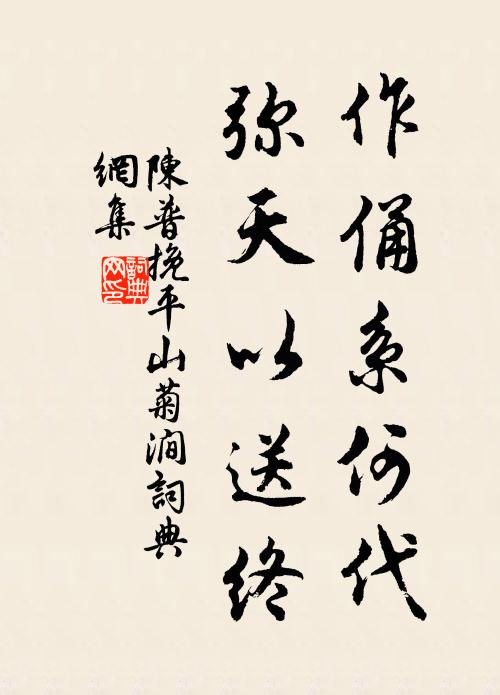 作俑系何代
弥天以送终
陳普挽平山菊澗詞典
網集
詞典网印